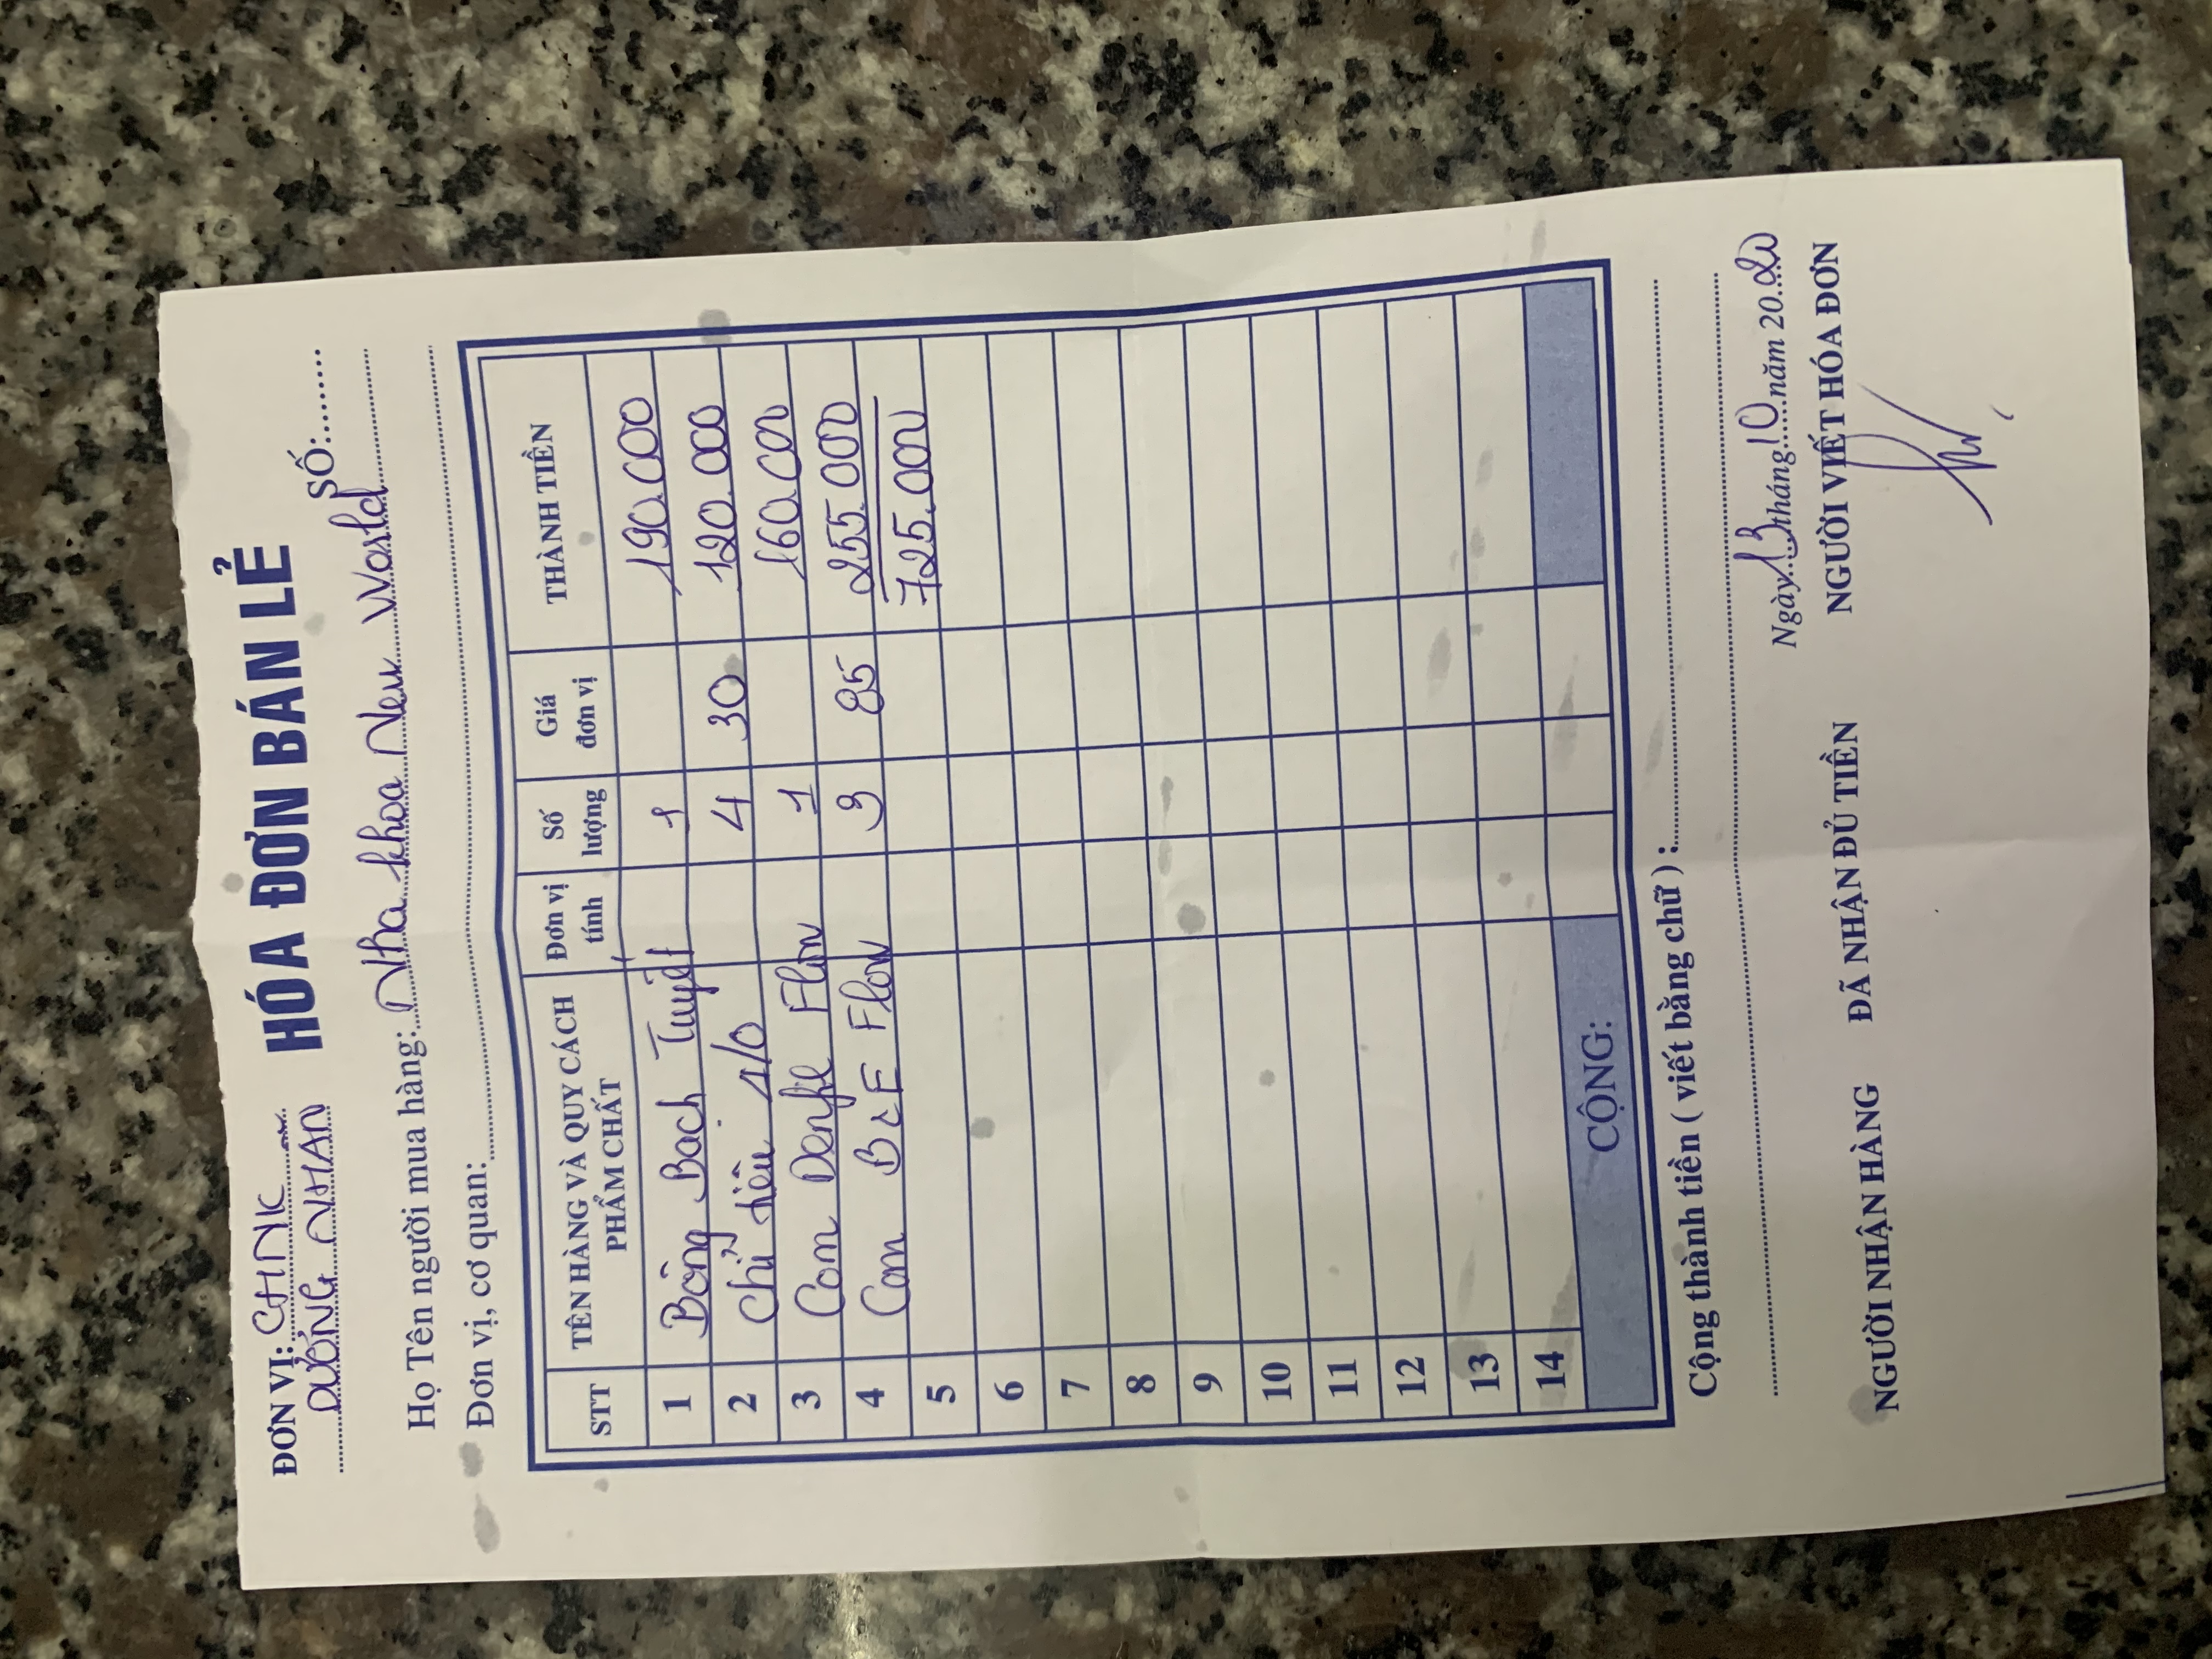 HÓA ĐƠN BÁN LẺ
ĐƠN VỊ: CHNK
DƯỠNG NHAN
SỐ:........
Họ Tên người mua hàng: Nha khoa New World
Đơn vị, cơ quan:
STT TÊN HÀNG VÀ QUY CÁCH PHẨM CHẤT Đơn vị tính Số lượng Giá đơn vị THÀNH TIỀN
1 Bông Bạch Tuyết 1 190.000
2 Chỉ tiêu 1/0 4 30 120.000
3 Com Denfil Flow 1 160.000
4 Com B&E Flow 3 85 255.000
5 725.000
6
7
8
9
10
11
12
13
14
CỘNG:
Cộng thành tiền ( viết bằng chữ ) :
Ngày 13 tháng 10 năm 2020
NGƯỜI NHẬN HÀNG ĐÃ NHẬN ĐỦ TIỀN NGƯỜI VIẾT HÓA ĐƠN